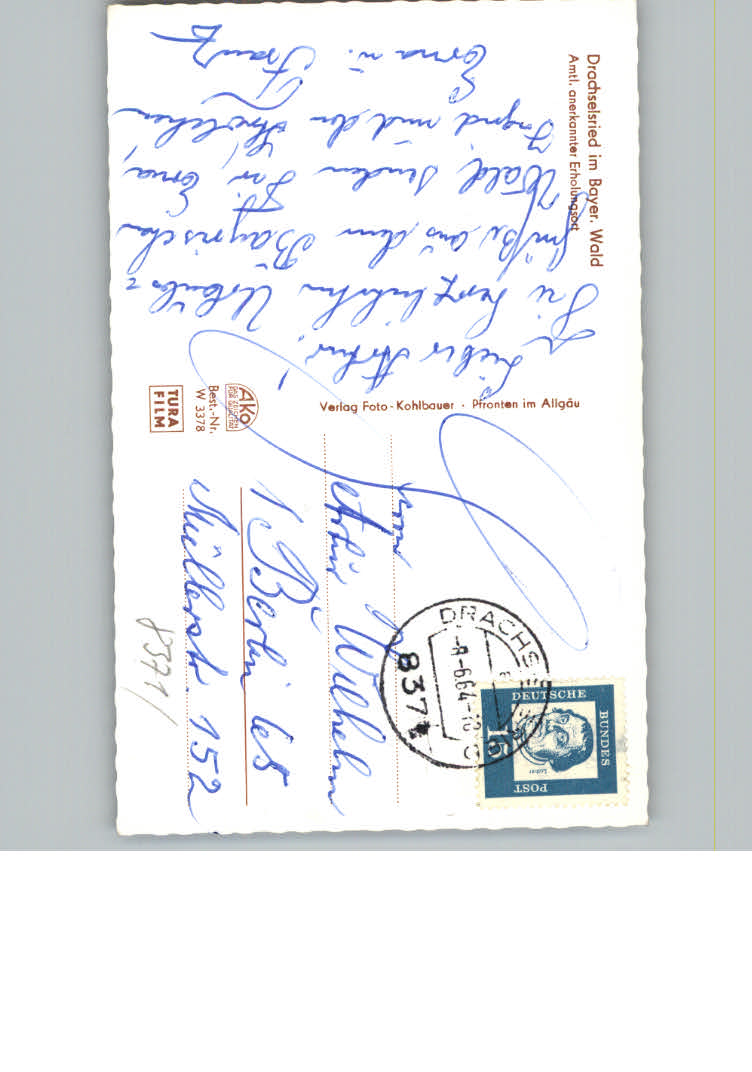 Drachselsried im Bayer. Wald
Amtl. anerkannter Erholungsort
Lieber Artur!
Die herzlichsten Urlaubs=
grüße aus dem Bayrischen
Wald senden Dir, Erna,
Ingrid und den
Erna u. Franz
Verlag Foto-Kohlbauer · Pfronten im Allgäu
Ako
Best.-Nr.
W 3378
TURA
FILM
DRACHSE
-8.-6.64-18
837
DEUTSCHE
BUNDES
POST
15
Luther
Artur Wilhelm
1 Berlin 65
Müllerstr. 152
8371/